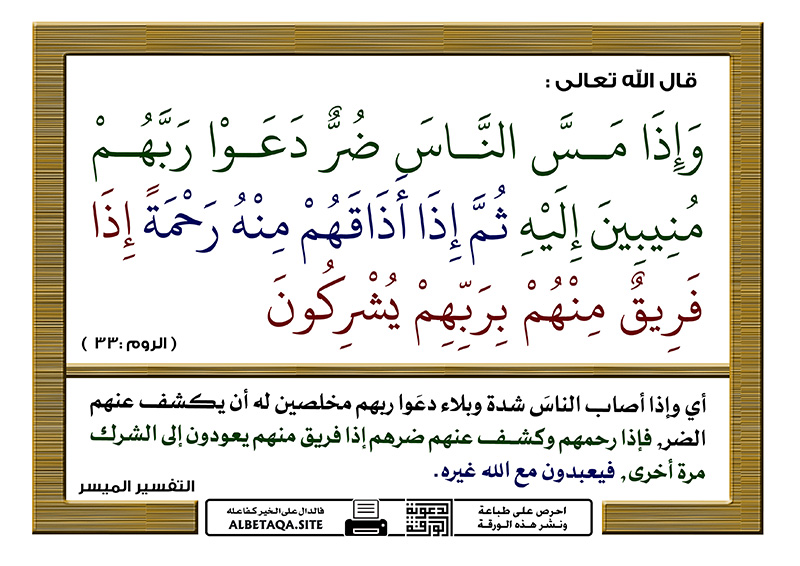 قال الله تعالى :
وَإِذَا مَسَّ النَّاسَ ضُرٌّ دَعَوْا رَبَّهُم
مُنِيبِينَ إِلَيْهِ ثُمَّ إِذَا أَذَاقَهُمْ مِنْهُ رَحْمَةً إِذَا
فَرِيقٌ مِنْهُمْ بِرَبِّهِمْ يُشْرِكُونَ
( الروم :٣٣ )
أي وإذا أصاب الناسَ شدة وبلاء دعَوا ربهم مخلصين له أن يكشف عنهم
الضر, فإذا رحمهم وكشف عنهم ضرهم إذا فريق منهم يعودون إلى الشرك
مرة أخرى, فيعبدون مع الله غيره.
التفسير الميسر
احرص على طباعة
ونشر هذه الورقة
الدعوية
الورقة
فالدال على الخير كفاعله
ALBETAQA.SITE